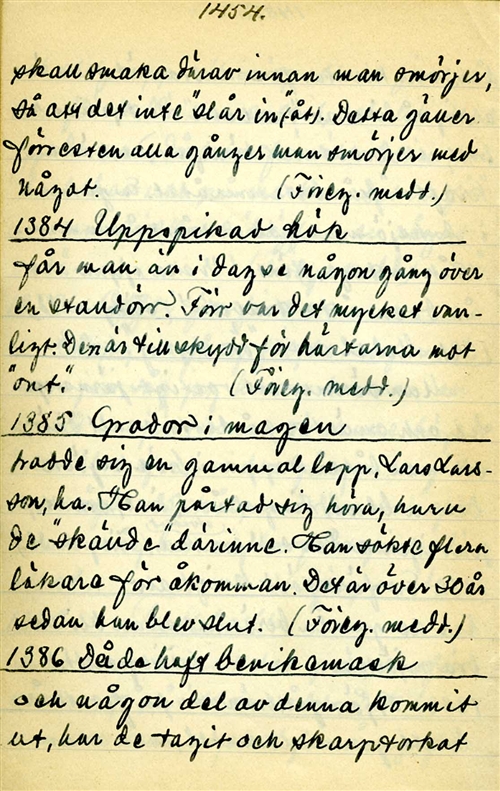 1454.
skall smaka därav innan man smörjer,
så att det inte "slår in" (åt). Detta gäller
förresten alla gånger man smörjer med
något. (Föreg. medd.)
1384 Uppspikad hök
får man än i dag se någon gång över
en stalldörr. Förr var det mycket van-
ligt. Den är till skydd för hästarna mot
"ont." (Föreg. medd.)
1385 Grodor i magen
trodde sig en gammal lapp, Lars Lars-
son, ha. Han påstod sig höra, huru
de "skällde" därinne. Han sökte flera
läkare för åkomman. Det är över 30 år
sedan han blev slut. (Föreg. medd.)
1386 Då de haft benikemask
och någon del av denna kommit
ut, har de tagit och skarptorkat